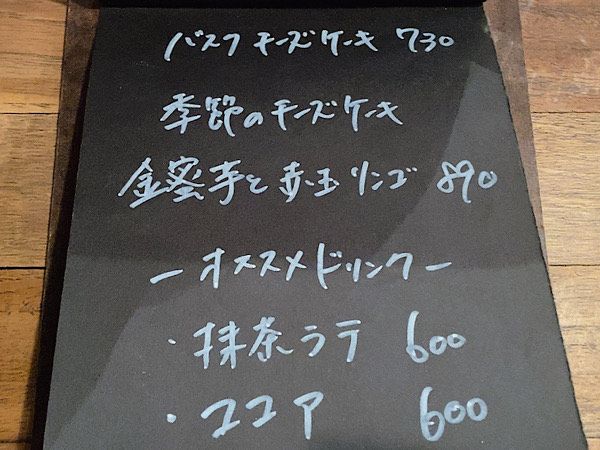 バスクチーズケーキ 730
季節のチーズケーキ
金蜜芋と赤玉リンゴ 890
ーオススメドリンクー
・抹茶ラテ 600
・ココア 600